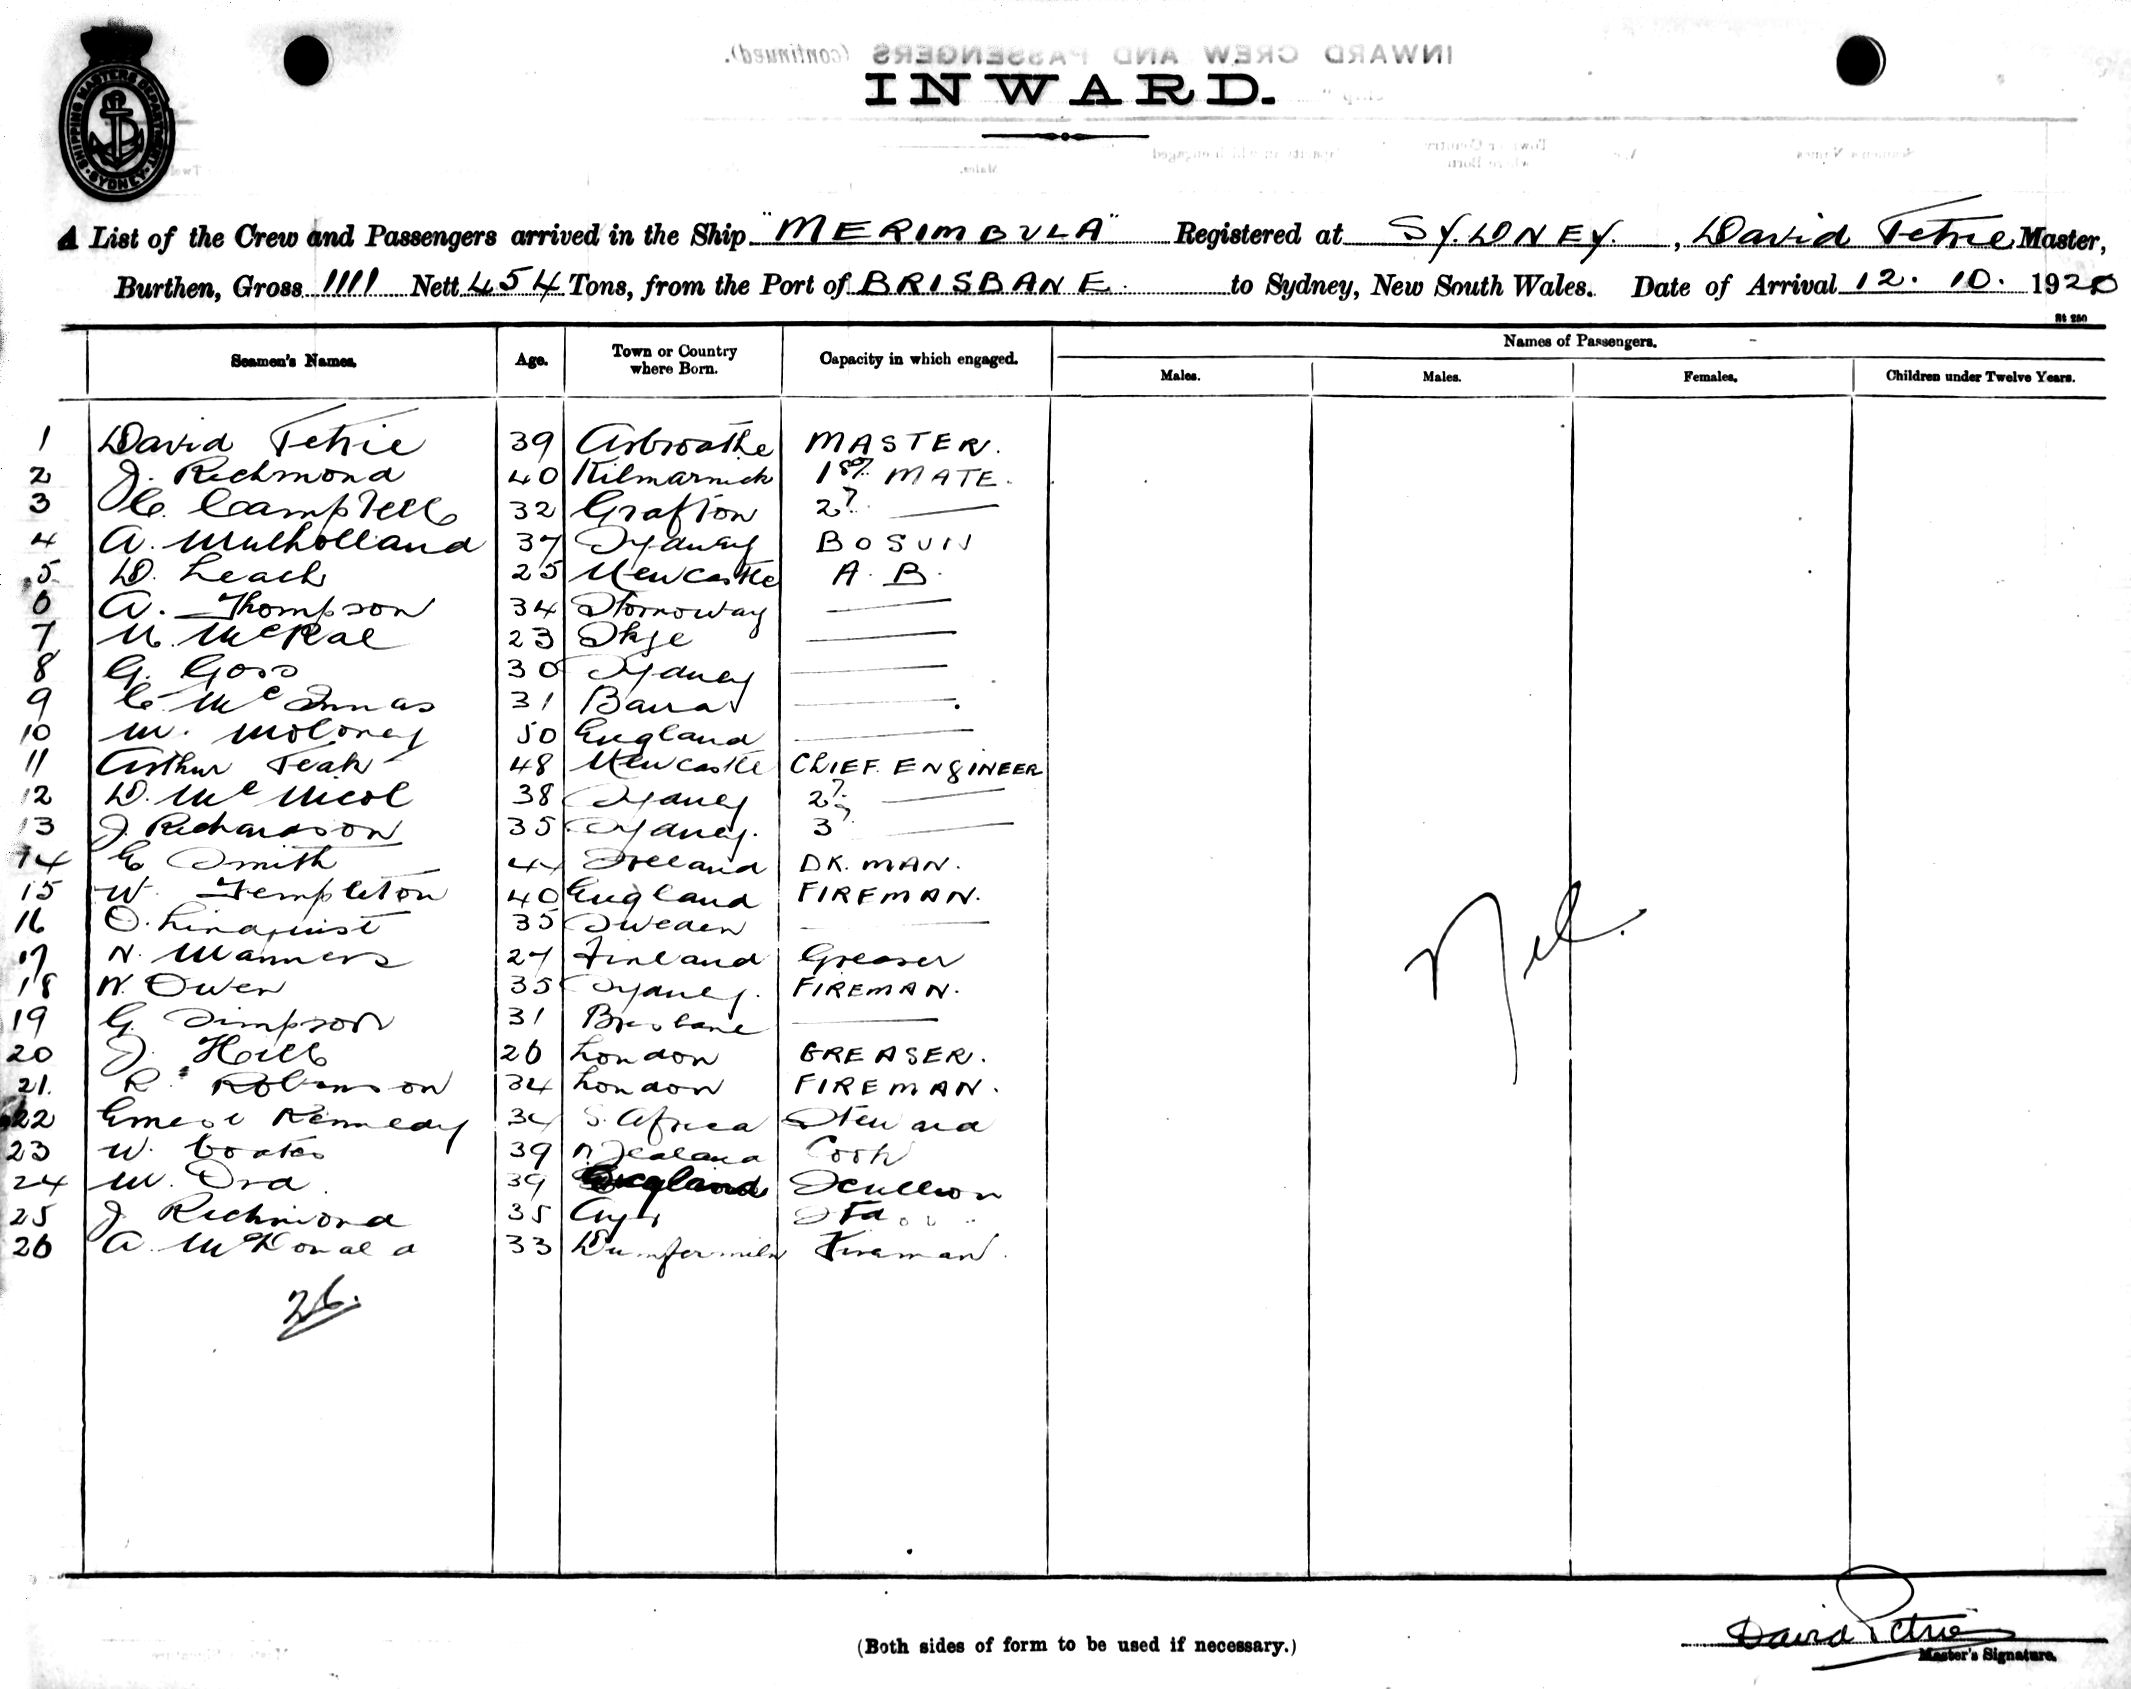 SHIPPING MASTERS DEPARTMENT SYDNEY
INWARD CREW AND PASSENGERS (continued).
INWARD.
A List of the Crew and Passengers arrived in the Ship "MERIMBULA" Registered at SYDNEY, David Petrie Master,
Burthen, Gross 1111 Nett 454 Tons, from the Port of BRISBANE to Sydney, New South Wales. Date of Arrival 12. 10. 1920
St 280
Seamen's Names. Age. Town or Country where Born. Capacity in which engaged. Names of Passengers.
Males. Males. Females. Children under Twelve Years.
1 David Petrie 39 Arbroathe MASTER.
2 J. Richmond 40 Kilmarnick 1st MATE.
3 C. Campbell 32 Grafton 2nd —
4 A. Mulholland 37 Sydney BOSUN
5 D. Leach 25 Newcastle A. B.
6 A. Thompson 34 Stornoway —
7 N. McRae 23 Skye —
8 G. Goss 30 Sydney —
9 C. McInnas 31 Barra —
10 M. Moloney 50 England —
11 Arthur Peak 48 Newcastle CHIEF. ENGINEER
12 D. McNicol 38 Sydney 2nd —
13 J. Richardson 35 Sydney. 3rd —
14 E Smith 44 Ireland DK. MAN.
15 W. Templeton 40 England FIREMAN.
16 O. Linquist 35 Sweden —
17 N. Manners 27 Finland Greaser
18 W. Owen 35 Sydney. FIREMAN.
19 G. Simpson 31 Brisbane —
20 J. Hill 26 London GREASER.
21. R. Robinson 34 London FIREMAN.
22 Ernest Kennedy 34 S. Africa Steward
23 W. Coates 39 N Zealand Cook
24 M. Ord 39 England Scullion
25 J Richmond 35 Ayr
26 A. McDonald 33 Dumfermiln Fireman.
26.
Nil.
David Petrie
Master's Signature.
(Both sides of form to be used if necessary.)